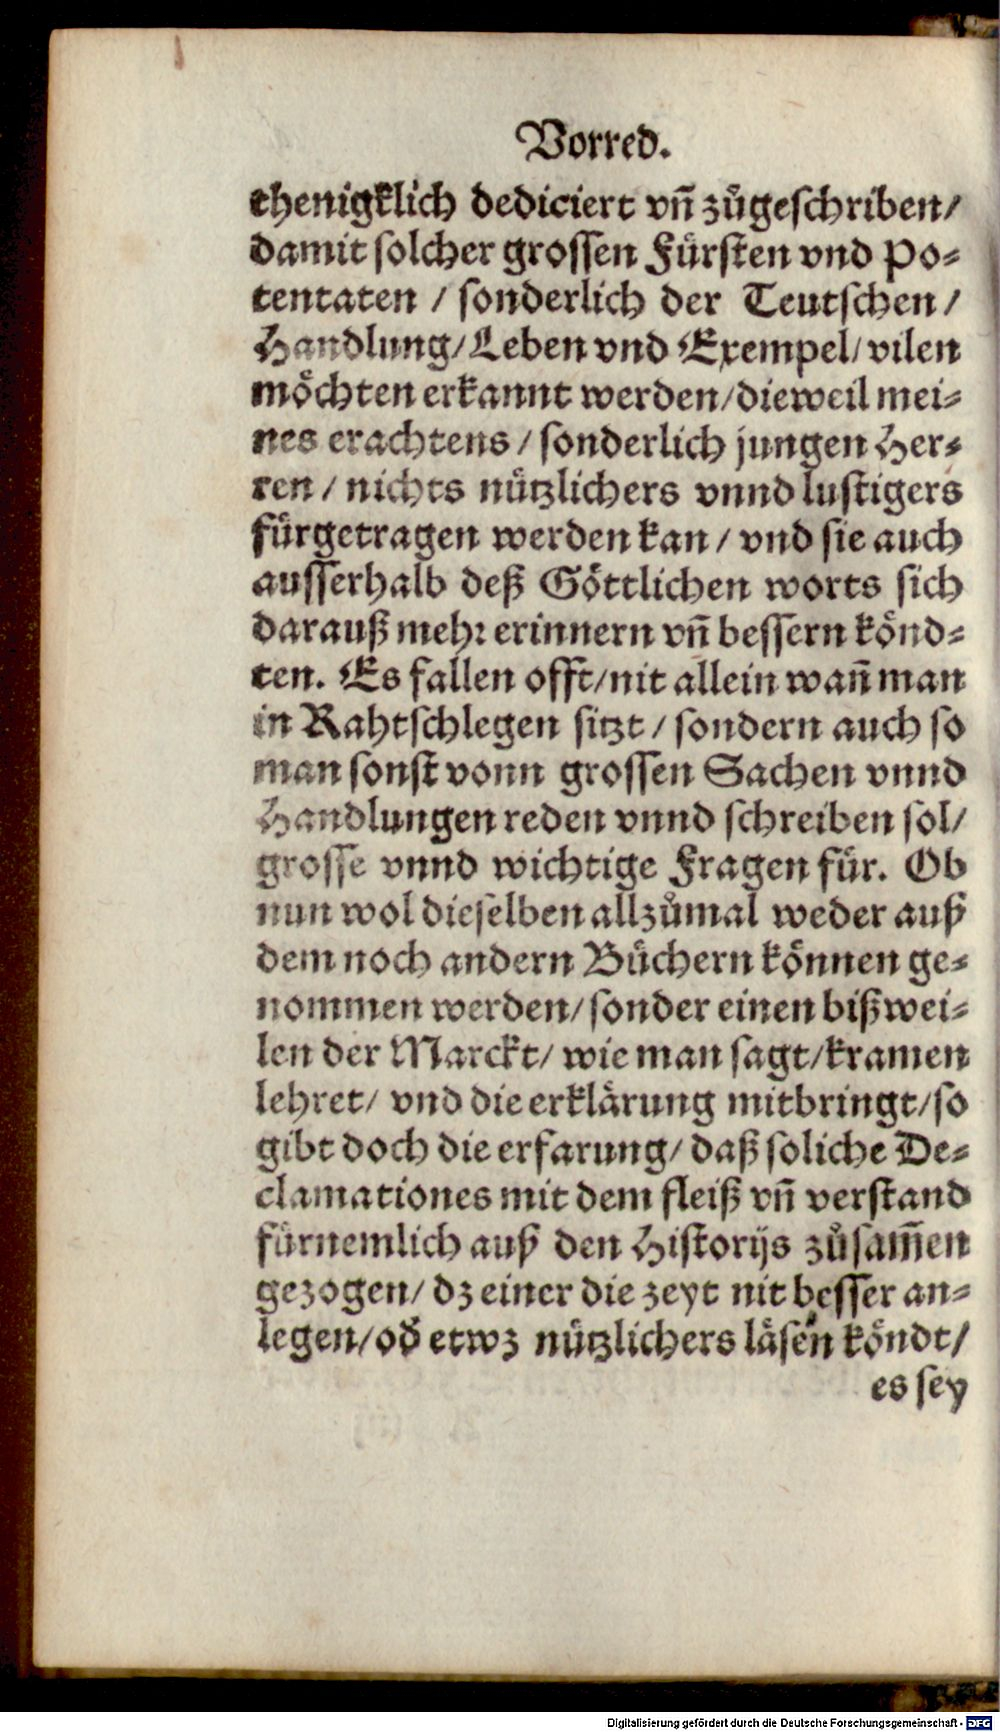 Vorred.
thenigklich dediciert vñ zůgeschriben/
damit solcher grossen Fürsten vnd Po-
tentaten / sonderlich der Teutschen /
Handlung/ Leben vnd Exempel/ vilen
möchten erkannt werden/ dieweil mei-
nes erachtens / sonderlich jungen Her-
ren / nichts nützlichers vnnd lustigers
fürgetragen werden kan / vnd sie auch
ausserhalb deß Göttlichen worts sich
darauß mehr erinnern vñ bessern könd-
ten. Es fallen offt/ nit allein wañ man
in Rahtschlegen sitzt / sondern auch so
man sonst vonn grossen Sachen vnnd
Handlungen reden vnnd schreiben sol/
grosse vnnd wichtige Fragen für. Ob
nun wol dieselben allzůmal weder auß
dem noch andern Büchern können ge-
nommen werden/ sonder einen bißwei-
len der Marckt/ wie man sagt/ kramen
lehret/ vnd die erklärung mitbringt/ so
gibt doch die erfarung/ daß soliche De-
clamationes mit dem fleiß vñ verstand
fürnemlich auß den Historijs zůsam̃en
gezogen/ dz einer die zeyt nit besser an-
legen/ od̃ etwz nützlichers läsen köndt/
es sey
Digitalisierung gefördert durch die Deutsche Forschungsgemeinschaft - DFG